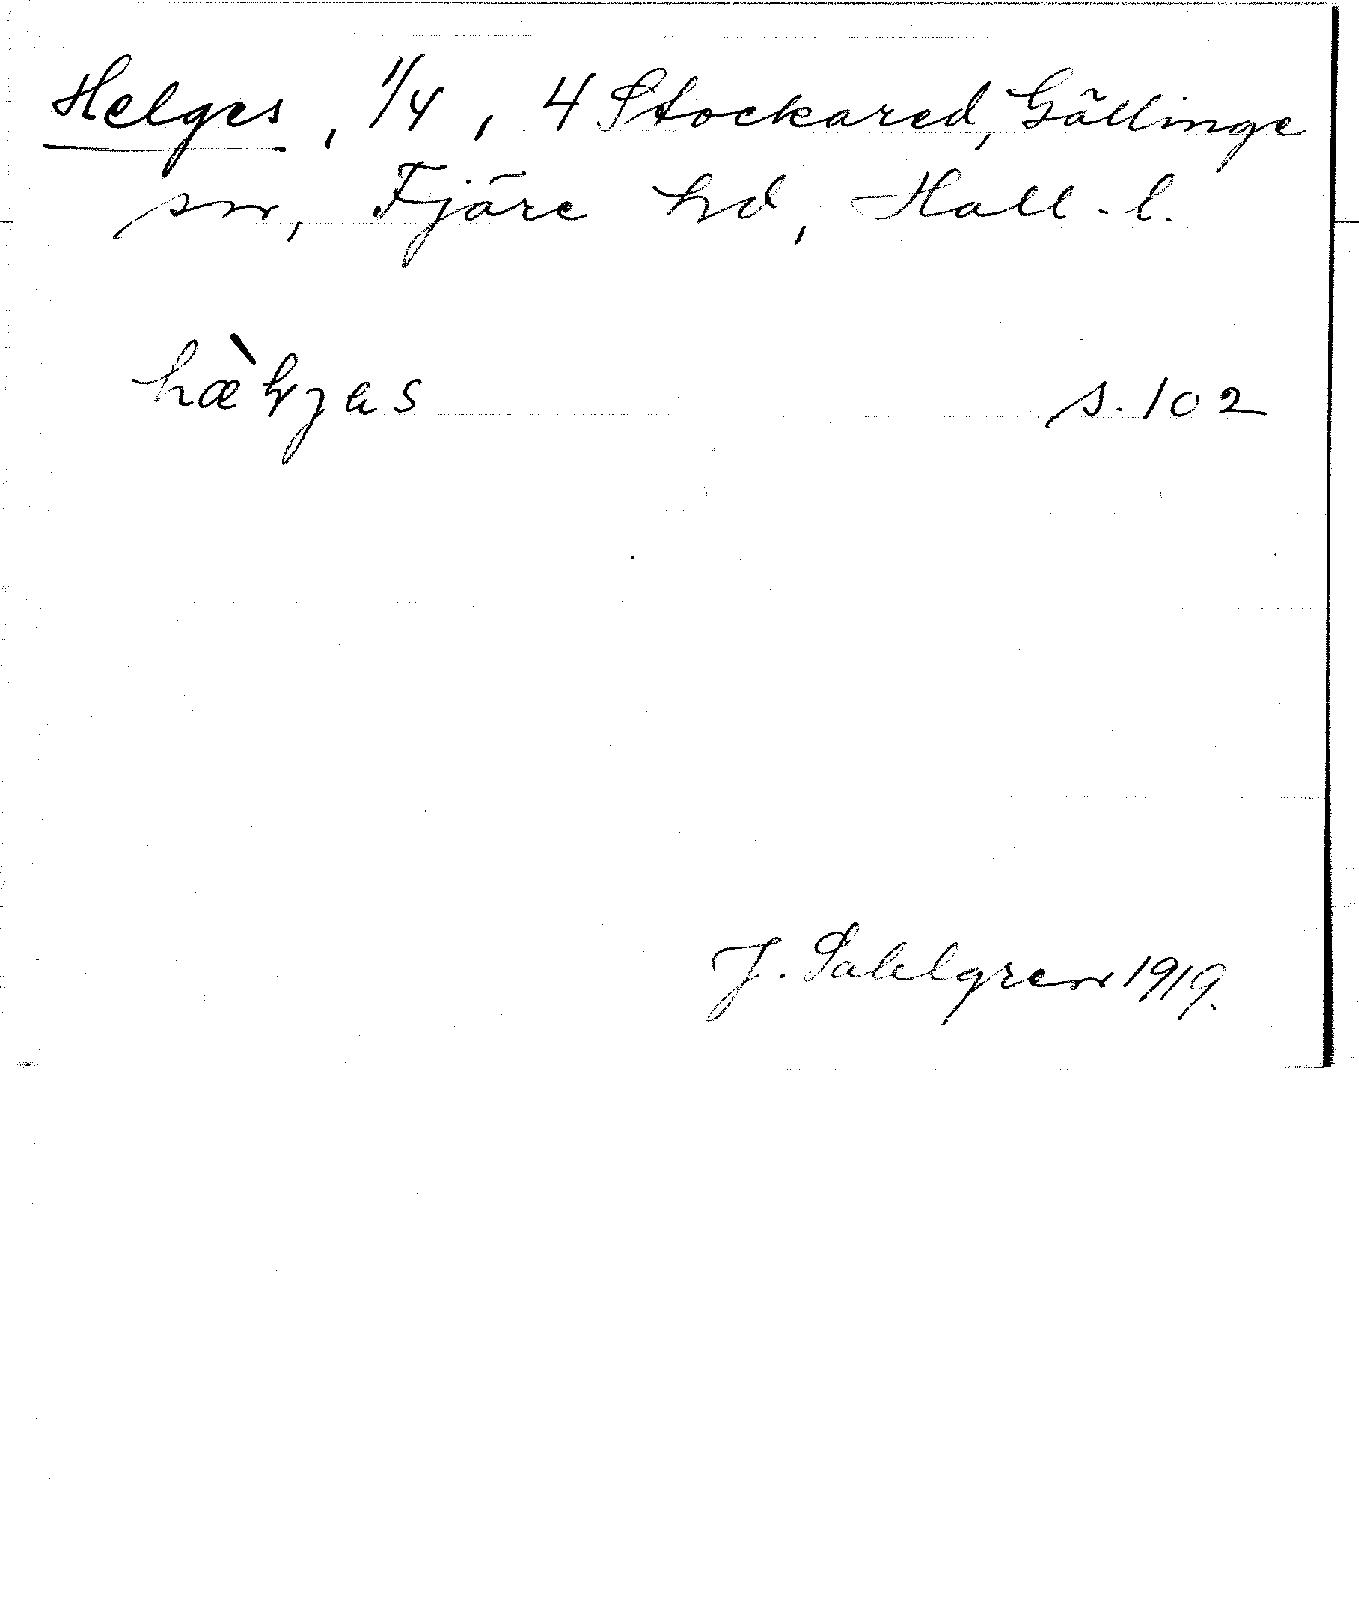 Helges, 1/4, 4 Stockared, Gällinge
sn, Fjäre hd, Hall. l.
s. 102
J. Sahlgren 1919.